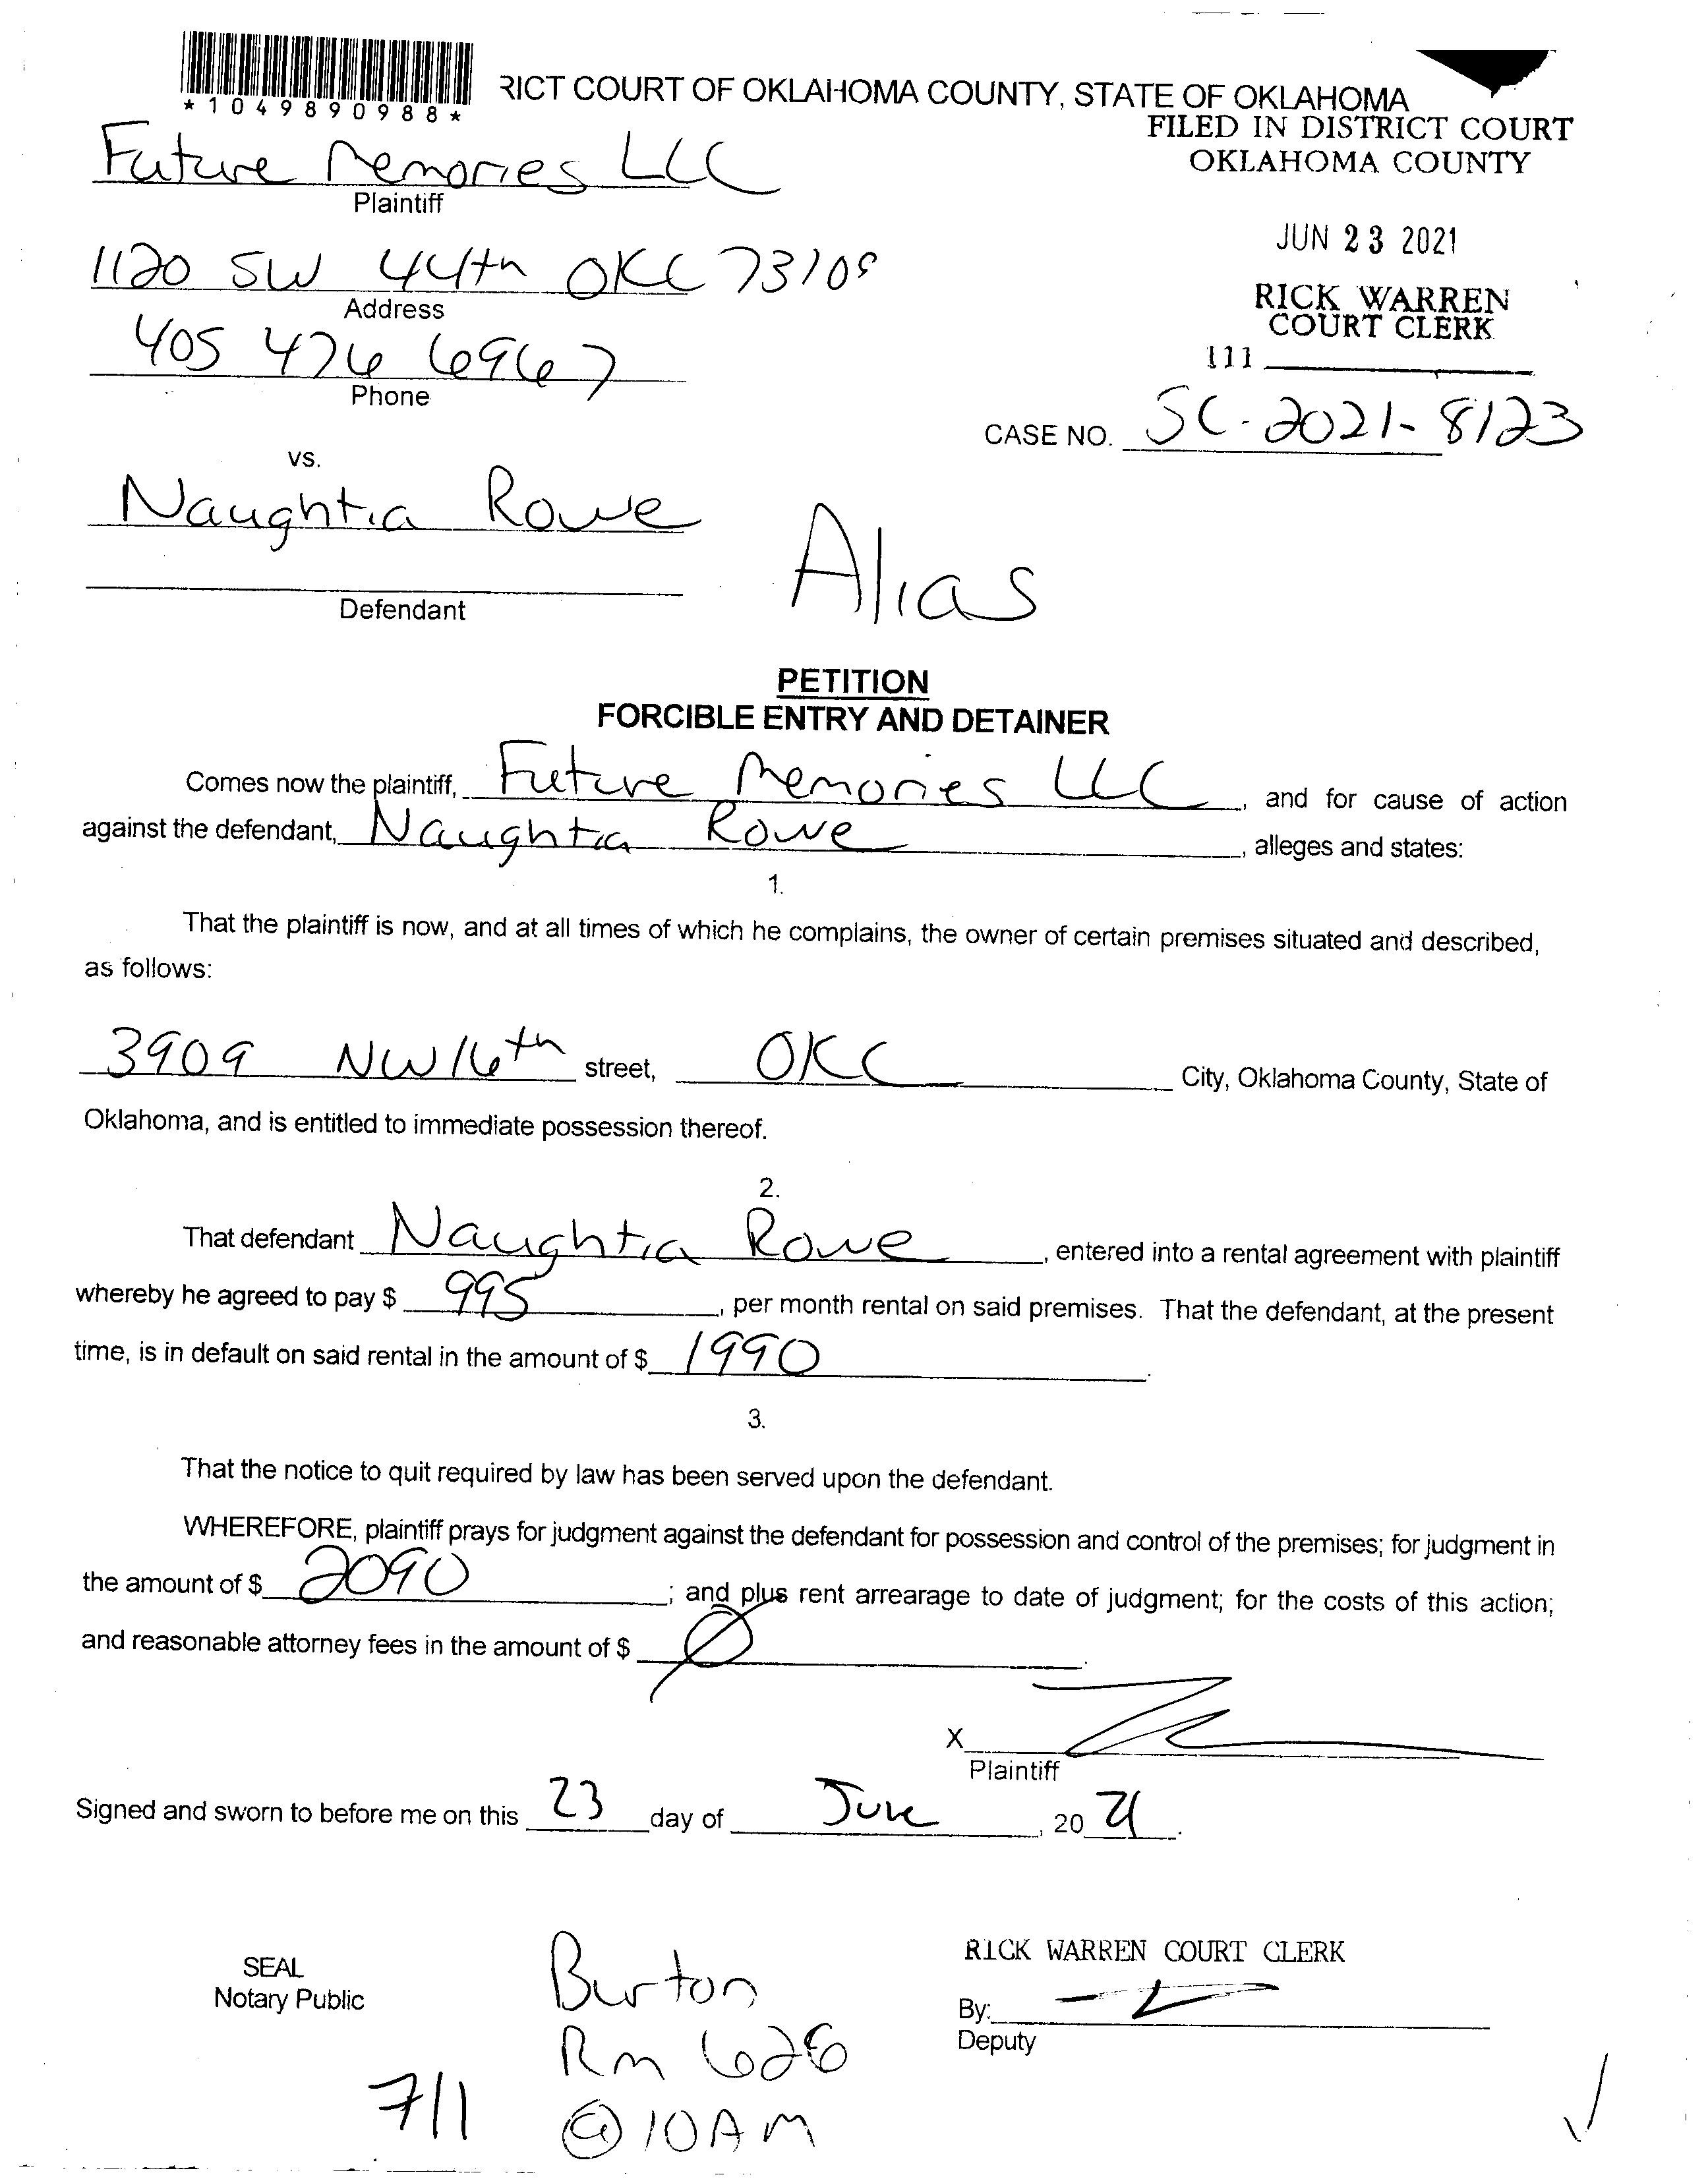 *1049890988*
RICT COURT OF OKLAHOMA COUNTY, STATE OF OKLAHOMA
FILED IN DISTRICT COURT
OKLAHOMA COUNTY
Future Memories LLC
Plaintiff
JUN 23 2021
1120 SW 44th OKC 73109
Address
RICK WARREN
COURT CLERK
405 476 6967
Phone
111
CASE NO. SC-2021-8123
VS.
Naughtia Rowe
Alias
Defendant
PETITION
FORCIBLE ENTRY AND DETAINER
Comes now the plaintiff, Future Memories LLC, and for cause of action
against the defendant, Naughtia Rowe, alleges and states:
1.
That the plaintiff is now, and at all times of which he complains, the owner of certain premises situated and described,
as follows:
3909 NW 16th street, OKC City, Oklahoma County, State of
Oklahoma, and is entitled to immediate possession thereof.
2.
That defendant Naughtia Rowe, entered into a rental agreement with plaintiff
whereby he agreed to pay $ 995, per month rental on said premises. That the defendant, at the present
time, is in default on said rental in the amount of $ 1990.
3.
That the notice to quit required by law has been served upon the defendant.
WHEREFORE, plaintiff prays for judgment against the defendant for possession and control of the premises; for judgment in
the amount of $ 2090; and plus rent arrearage to date of judgment; for the costs of this action;
and reasonable attorney fees in the amount of $ Ø.
X
Plaintiff
Signed and sworn to before me on this 23 day of June, 20 21.
SEAL
Notary Public
Burton
Rm 626
@ 10AM
7/1
RICK WARREN COURT CLERK
By:
Deputy